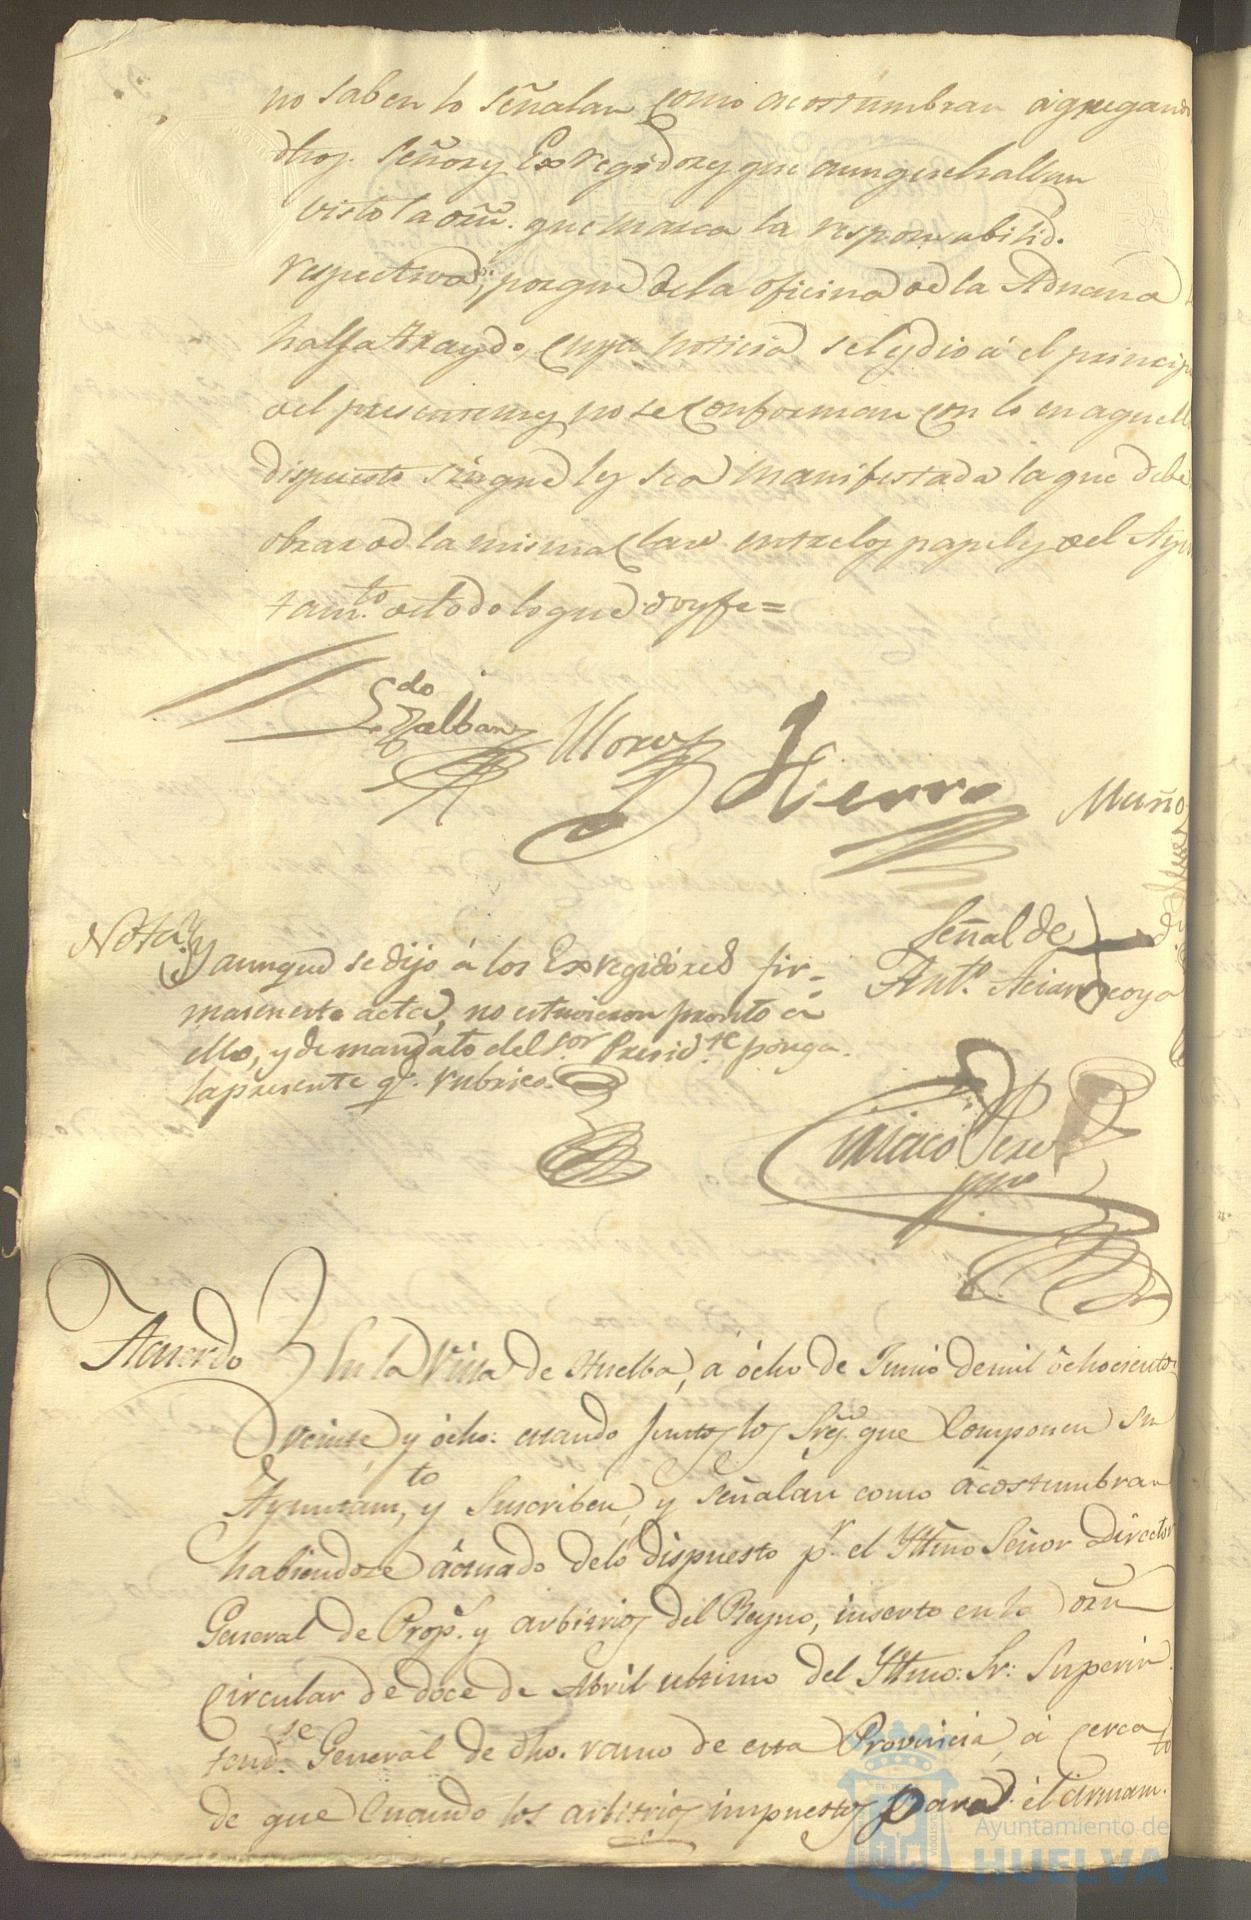 no saben lo señalan como acostumbran agregando
dhos. Señores Exregidores que aunque hallan
visto la orn. que marca la responsabilid.
respectiva, porque de la oficina de la Aduana
halla traydo, cuya noticia se les dio á el princip
del presentemes no se conforman con lo en aquella
dispuesto sin que les sea manifestada la que debe
obrar de la misma clase entre los papeles del Ayun
tamto. de todo lo que doy fe =
Ldo
Moro
Hierro
Muño
Señal de
Nota
Y aunque se dijo á los Exregidores fir=
masen esta acta, no estuvieron pronto á
ello, y de mandato del Sor Presidte ponga
la presente q. rubrico.
Anto.
Ciriaco Perez
Acuerdo
En la Villa de Huelba, a ócho de Junio demil óchociento
veinte, y ócho: estando juntos los Sres. que componen su
Ayuntamto, y suscriben, y señalan como acostumbran
habiendose actuado delo dispuesto pr. el Yltmo Señor Director
General de Props. y arbitrios del Reyno, inserto en la Orn
circular de doce de Abril ultimo del Yltmo: Sr: Superin
tendse General de dho. ramo de esta Provincia, á cerca
de que cuando los arbitrios impuestos para el armamto.
Ayuntamiento de
HUELVA